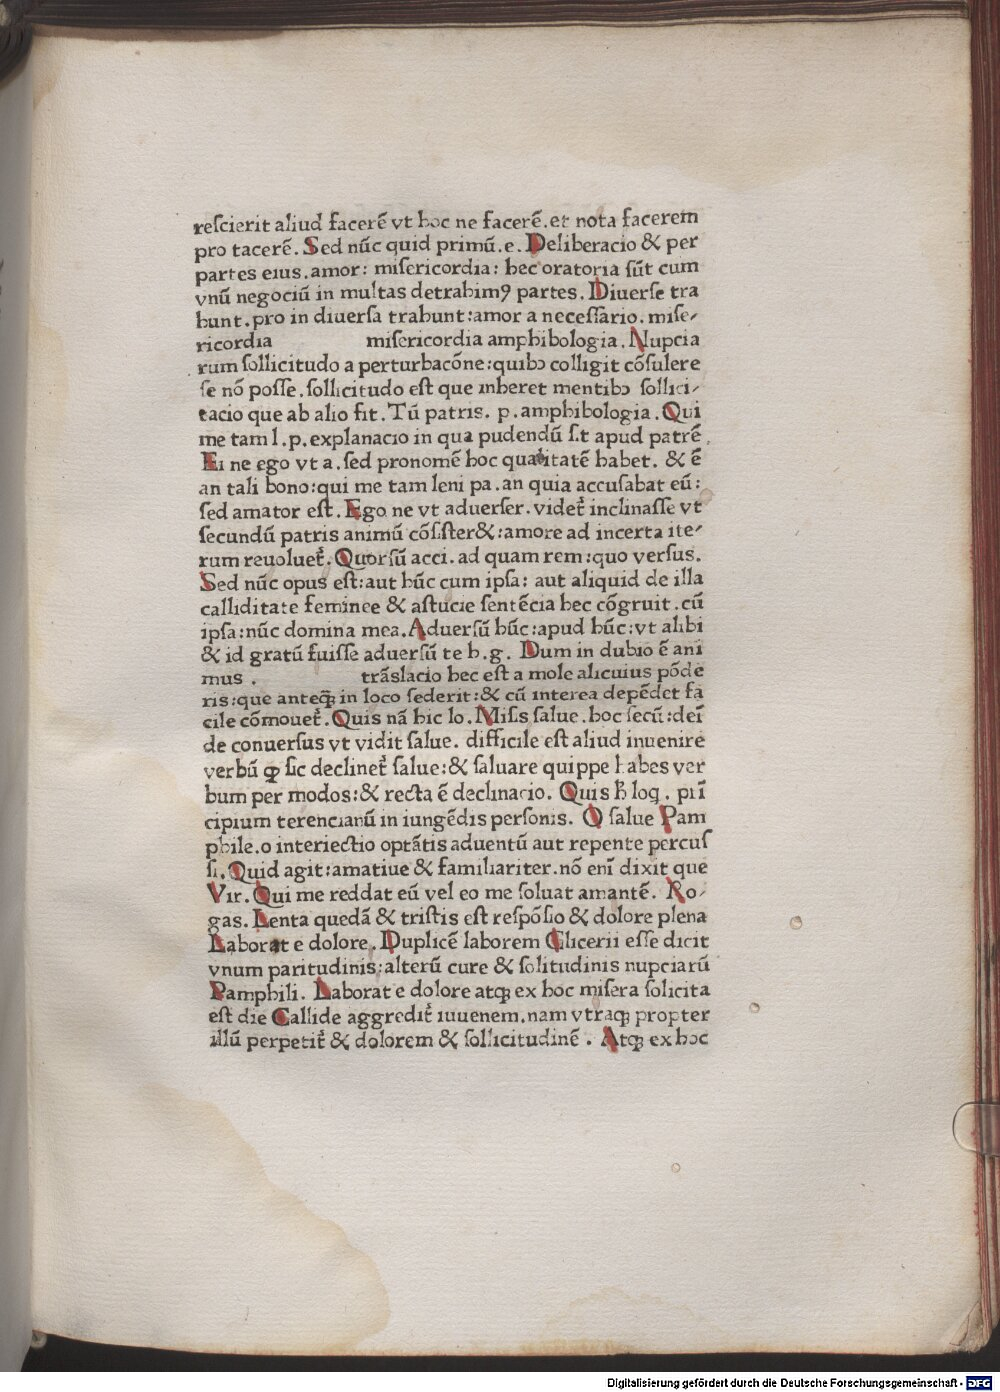 reſcierit aliud facerē vt hoc ne facerē.et nota facerem
pro tacerē. Sed nūc quid primū.e. Deliberacio & per
partes eius.amor: miſericordia: hec oratoria ſūt cum
vnū negociū in multas detrahimꝰ partes. Diuerſe tra
hunt.pro in diuerſa trahunt:amor a neceſſario. miſe-
ricordia miſericordia amphibologia. Nupcia
rum ſollicitudo a perturbacōne:quibꝰ colligit cōſulere
ſe nō poſſe.ſollicitudo eſt que inheret mentibꝰ ſollici-
tacio que ab alio fit. Tū patris. p.amphibologia. Qui
me tam l.p.explanacio in qua pudendū ſ.t apud patrē.
Ei ne ego vt a.ſed pronomē hoc qualitatē habet. & ē
an tali bono:qui me tam leni pa.an quia accuſabat eū:
ſed amator eſt. Ego ne vt aduerſer.videt᷑ inclinaſſe vt
ſecundū patris animū cōſiſter&:amore ad incerta ite-
rum reuoluet᷑. Quorſū acci.ad quam rem:quo verſus.
Sed nūc opus eſt:aut hūc cum ipſa: aut aliquid de illa
calliditate feminee & aſtucie ſentēcia hec cōgruit.cū
ipſa:nūc domina mea. Aduerſū hūc:apud hūc:vt alibi
& id gratū fuiſſe aduerſū te h.g. Dum in dubio ē ani
mus . trāſlacio hec eſt a mole alicuius pōde
ris:que anteꝗ̄ in loco ſederit:& cū interea depēdet fa
cile cōmouet᷑. Quis nā hic lo. Miſis ſalue.hoc ſecū:deī
de conuerſus vt vidit ſalue. difficile eſt aliud inuenire
verbū ꝙ ſic declinet᷑ ſalue:& ſaluare quippe habes ver
bum per modos:& recta ē declinacio. Quis h̄ loq. pri̅
cipium terencianū in iungēdis perſonis. O ſalue Pam
phile.o interiectio optātis aduentū aut repente percuſ
ſi. Quid agit:amatiue & familiariter.nō enī dixit que
Vir. Qui me reddat eū vel eo me ſoluat amantē. Ro-
gas. Lenta quedā & triſtis eſt reſpōſio & dolore plena
Laborat e dolore. Duplicē laborem Glicerii eſſe dicit
vnum paritudinis:alterū cure & ſolitudinis nupciarū
Pamphili. Laborat e dolore atqꝫ ex hoc miſera ſolicita
eſt die Callide aggredit᷑ iuuenem.nam vtraqꝫ propter
illū perpetit᷑ & dolorem & ſollicitudinē . Atqꝫ ex hoc
Digitalisierung gefördert durch die Deutsche Forschungsgemeinschaft - DFG